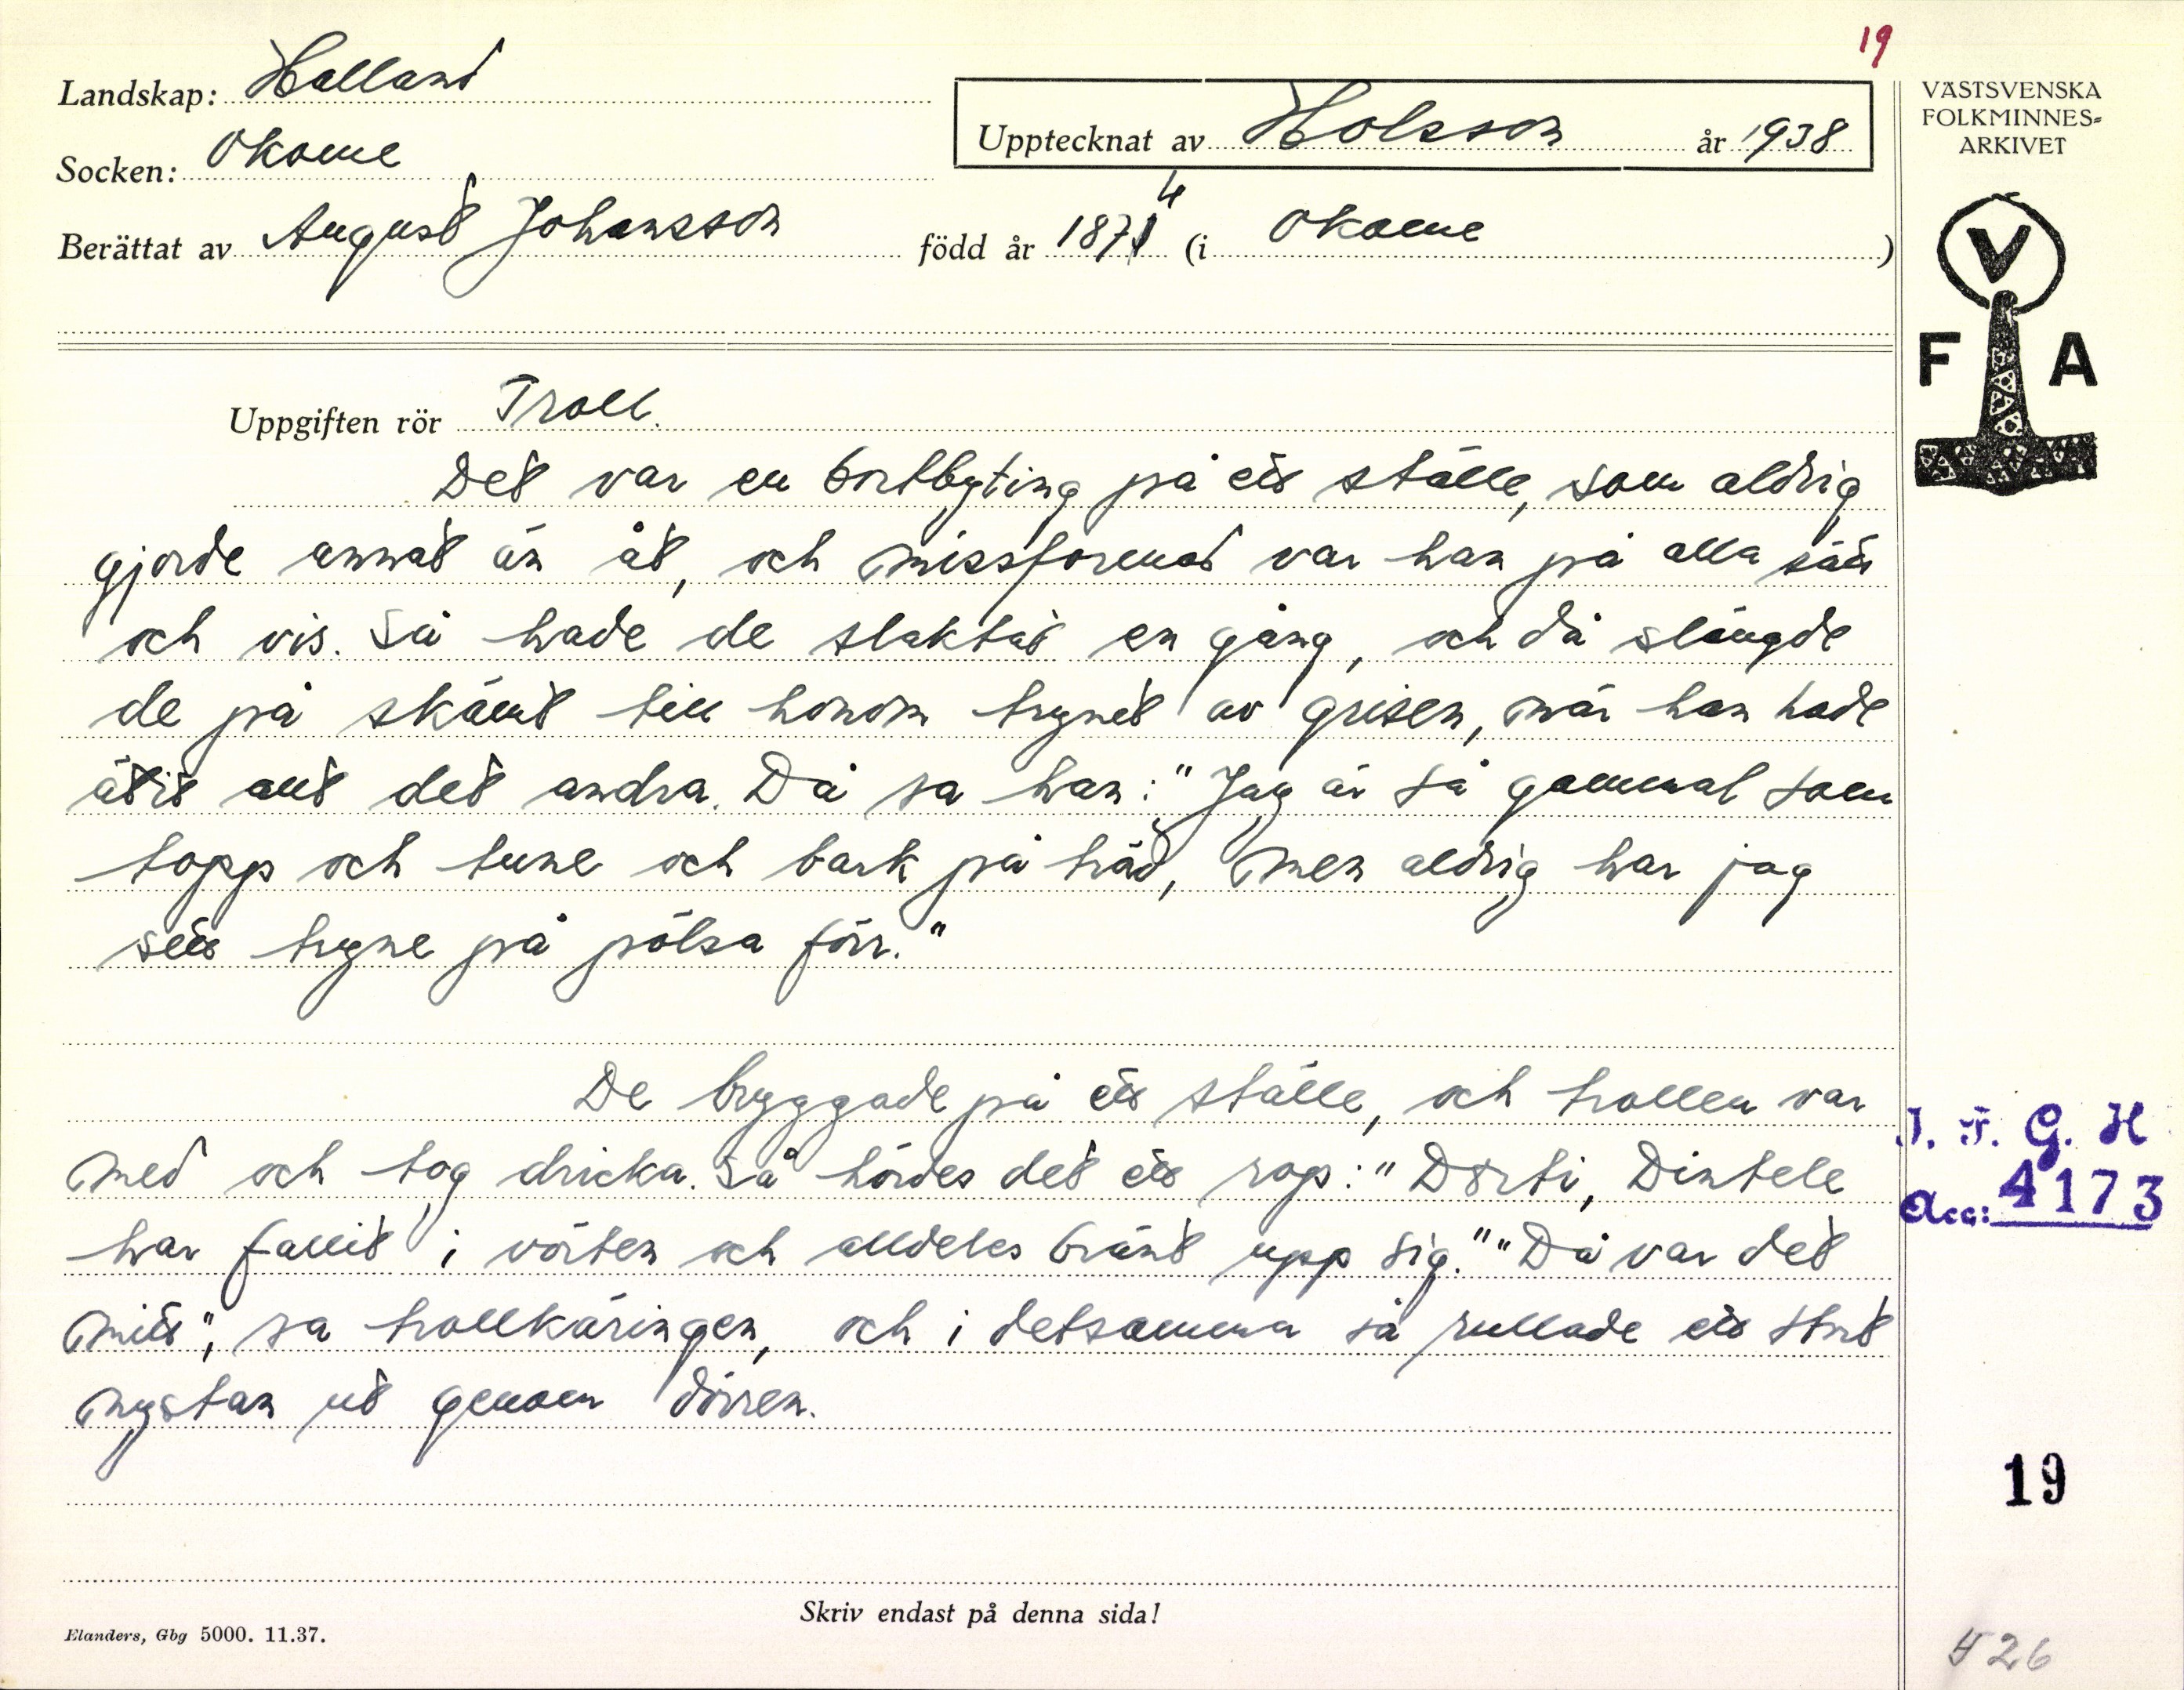 19
Landskap: Halland
Socken: Okome
Berättat av August Johansson född år 1874 (i Okome)
Upptecknat av Holsson år 1938
VÄSTSVENSKA
FOLKMINNES-
ARKIVET
V
F A
Uppgiften rör Troll.
Det var en bortbyting på ett ställe, som aldrig
gjorde annat än åt, och missformad var han på alla sätt
och vis. Så hade de slaktat en gång, och då slängde
de på skämt till honom trynet av grisen, när han hade
ätit allt det andra. Då sa han: "Jag är så gammal som
topp och tune och bark på träd, men aldrig har jag
sett tryne på pölsa förr."
De bryggade på ett ställe, och trollen var
med och tog dricka. Så hördes det ett rop: "Dorti, Dintele
har fallit i vörten och alldeles bränt upp sig." "Då var det
mitt", sa trollkäringen, och i detsamma så rullade ett stort
nystan ut genom dörren.
I. F. G. H
Acc: 4173
19
Skriv endast på denna sida!
Elanders, Gbg 5000. 11.37.